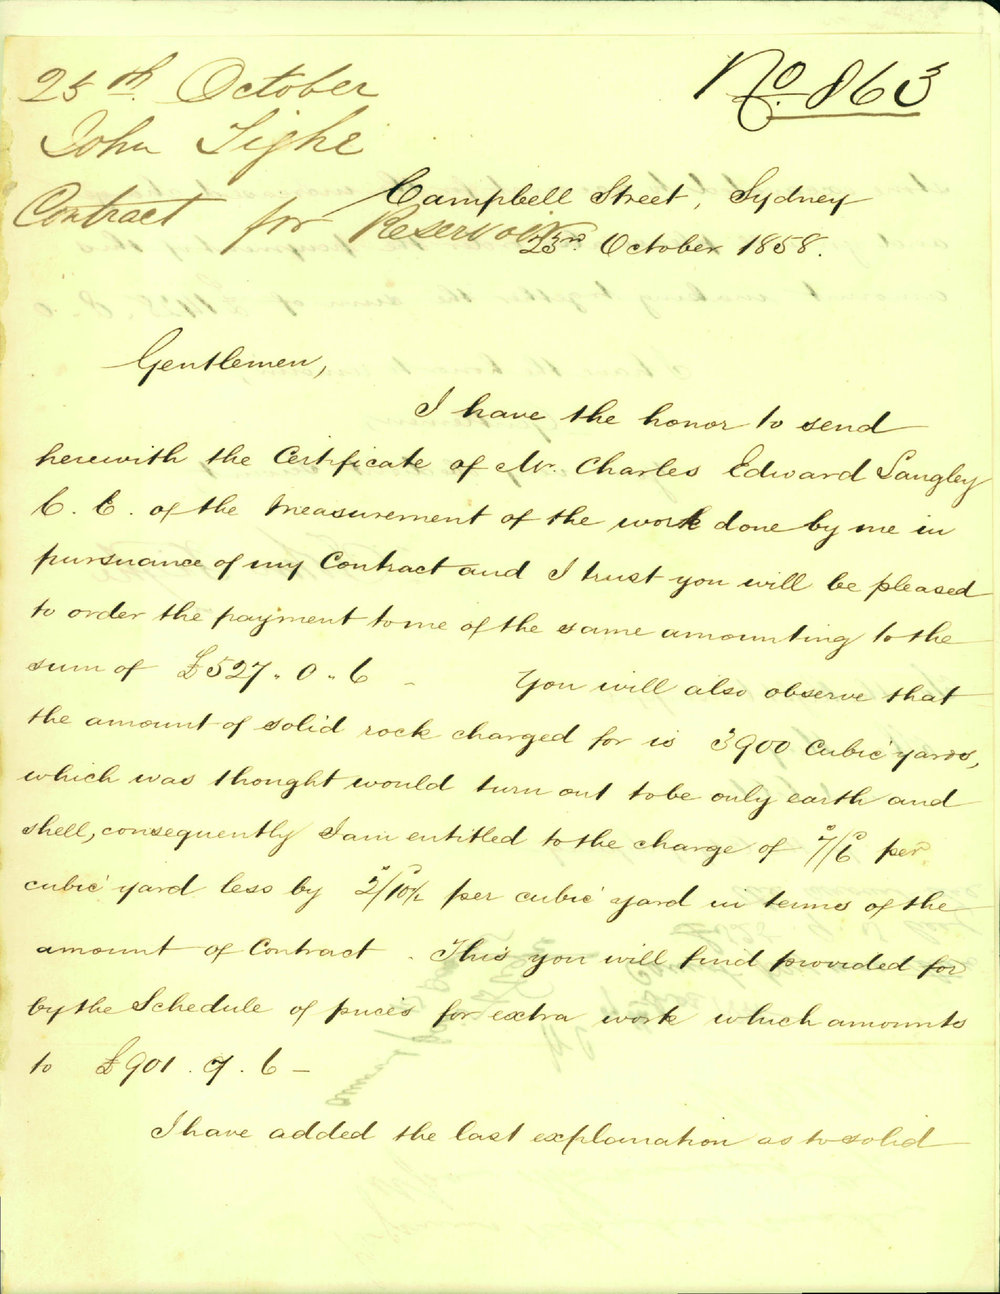 25th. October
No. 863
John Tighe
Contract for Reservoir
Campbell Street, Sydney
23rd. October 1858.
Gentlemen,
I have the honor to send
herewith the Certificate of Mr. Charles Edward Langley
C. E. of the Measurement of the work done by me in
pursuance of my Contract and I trust you will be pleased
to order the payment to me of the same amounting to the
sum of £527. 0. 6 - You will also observe that
the amount of solid rock charged for is 3900 Cubic yards,
which was thought would turn out to be only earth and
shell, consequently I am entitled to the charge of 7s/6p per
cubic yard less by 2s/10p½ per cubic yard in terms of the
amount of Contract. This you will find provided for
by the Schedule of prices for extra work which amounts
to £901. 7. 6 -
I have added the last explanation as to solid